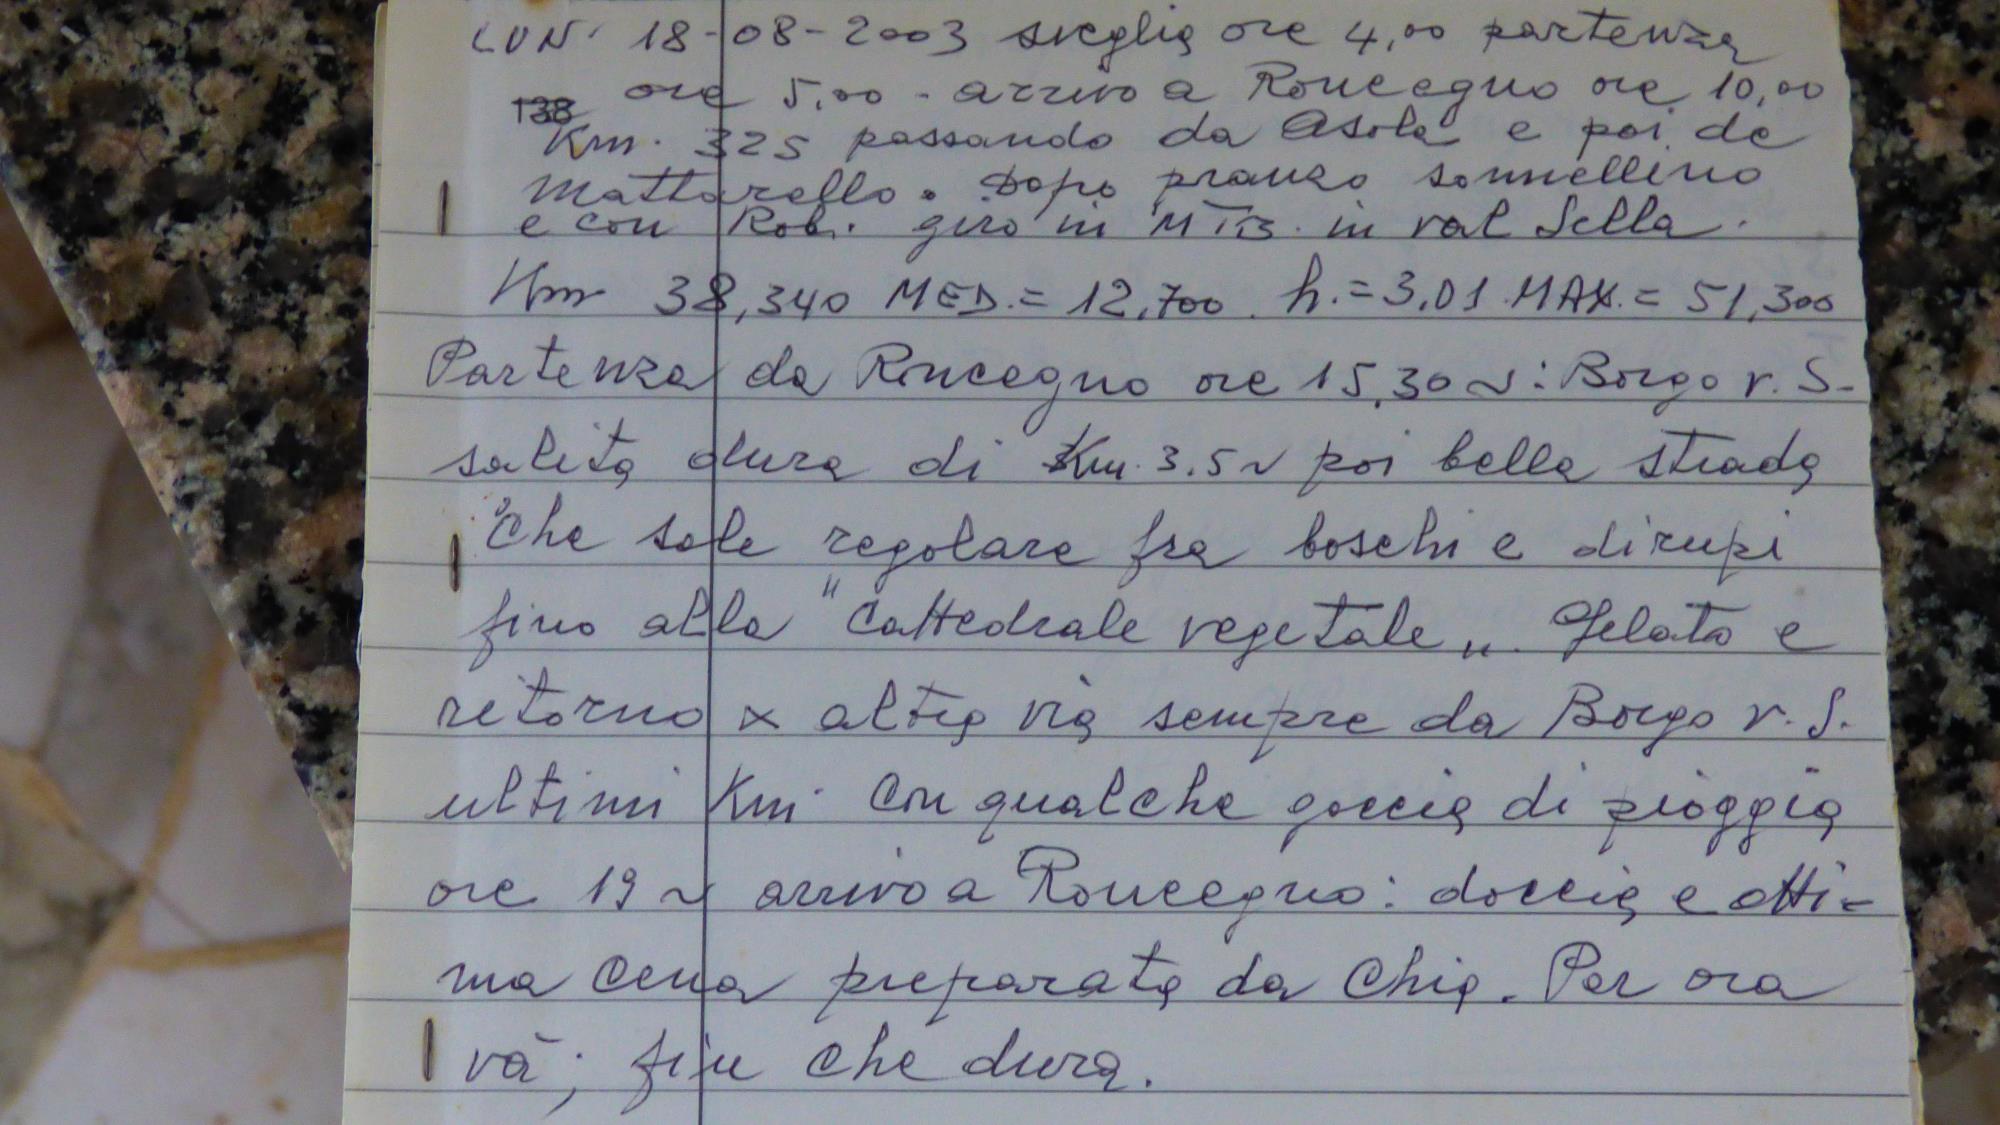 LUN. 18-08-2003 sveglia ore 4,00 partenza
ore 5,00 - arrivo a Roncegno ore 10,00
138
Km. 325 passando da Asola e poi da
Mattarello. Dopo pranzo sonnellino
e con Rob. giro in MTB. in val Sella.
Km 38,340 MED.= 12,700. h.=3,01. MAX.= 51,300
Partenza da Roncegno ore 15,30 ~: Borgo v. S.
salita dura di Km. 3.5 ~ poi bella strada
che sale regolare fra boschi e dirupi
fino alla "Cattedrale vegetale". Gelato e
ritorno x altra via sempre da Borgo v. S.
ultimi Km. con qualche goccia di pioggia
ore 19 ~ arrivo a Roncegno: doccia e otti-
ma cena preparata da Chia. Per ora
và; fin che dura.